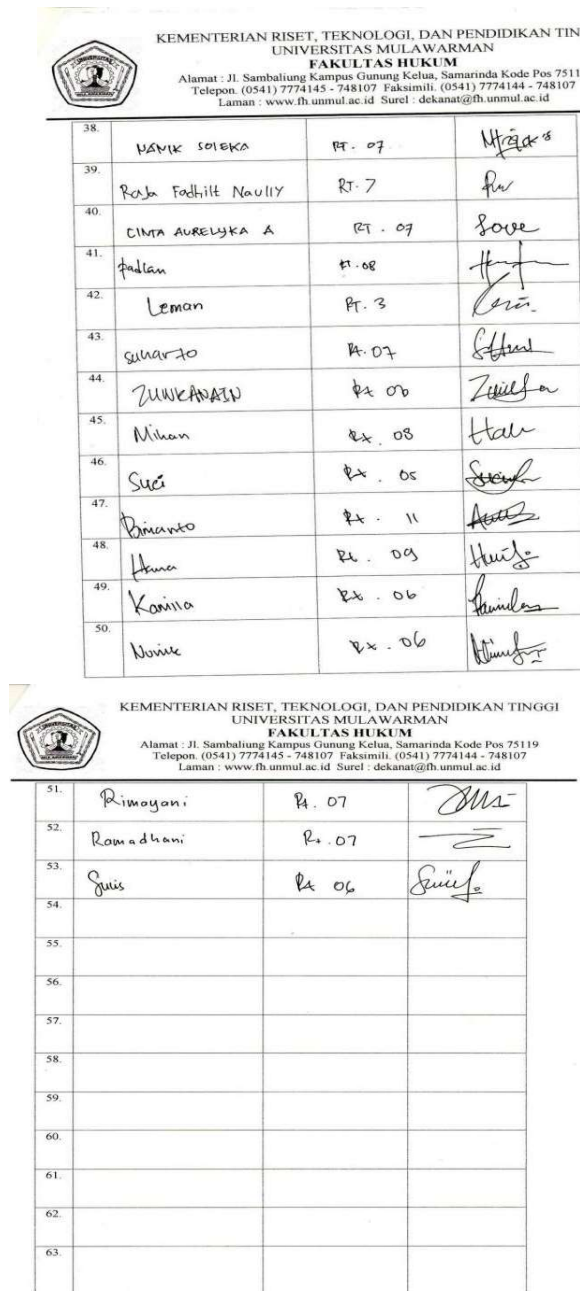 KEMENTERIAN RISET, TEKNOLOGI, DAN PENDIDIKAN TIN
UNIVERSITAS MULAWARMAN
FAKULTAS HUKUM
Alamat : Jl. Sambaliung Kampus Gunung Kelua, Samarinda Kode Pos 7511
Telepon. (0541) 7774145 - 748107 Faksimili. (0541) 7774144 - 748107
Laman : www.fh.unmul.ac.id Surel : dekanat@fh.unmul.ac.id
38. NANIK SOLEKA RT. 07
39. Raja Fadhilt Naully RT. 7
40. CINTA AURELYKA A RT. 07 Love
41. padlan RT. 08
42. Leman RT. 3
43. suharto Rt. 07
44. ZULKANAIN Rt 06
45. Mihan Rt. 08
46. Suci Rt. 05
47. Bimanto Rt. 11
48. Hana Rt. 09
49. Kamila Rt. 06
50. Rt. 06
KEMENTERIAN RISET, TEKNOLOGI, DAN PENDIDIKAN TINGGI
UNIVERSITAS MULAWARMAN
FAKULTAS HUKUM
Alamat : Jl. Sambaliung Kampus Gunung Kelua, Samarinda Kode Pos 75119
Telepon. (0541) 7774145 - 748107 Faksimili. (0541) 7774144 - 748107
Laman : www.fh.unmul.ac.id Surel : dekanat@fh.unmul.ac.id
51. Rimayani Rt. 07
52. Ramadhani Rt. 07
53. Rt 06
54.
55.
56.
57.
58.
59.
60.
61.
62.
63.